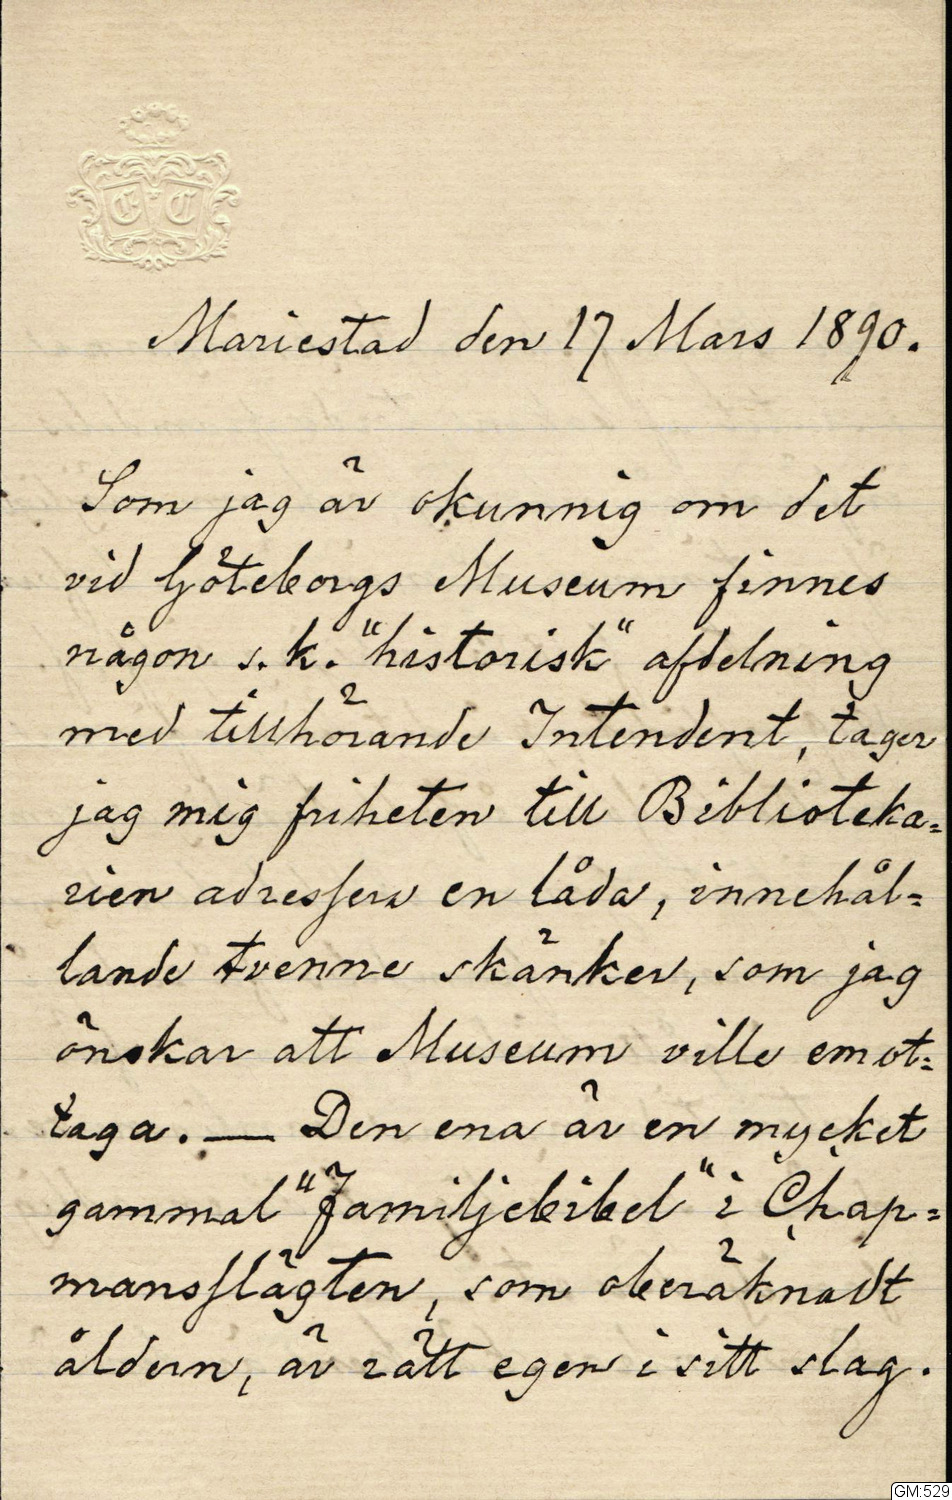 C C
Mariestad den 17 Mars 1890.
Som jag är okunnig om det
vid Göteborgs Museum finnes
någon s.k. "historisk" afdelning
med tillhörande Intendent, tager
jag mig friheten till Biblioteka=
rien adressera en låda, innehål=
lande tvenne skänker, som jag
önskar att Museum ville emot=
taga. — Den ena är en mycket
gammal "Familjebibel" i Chap=
mansslägten, som oberäknadt
åldern, är rätt egen i sitt slag.
GM:529